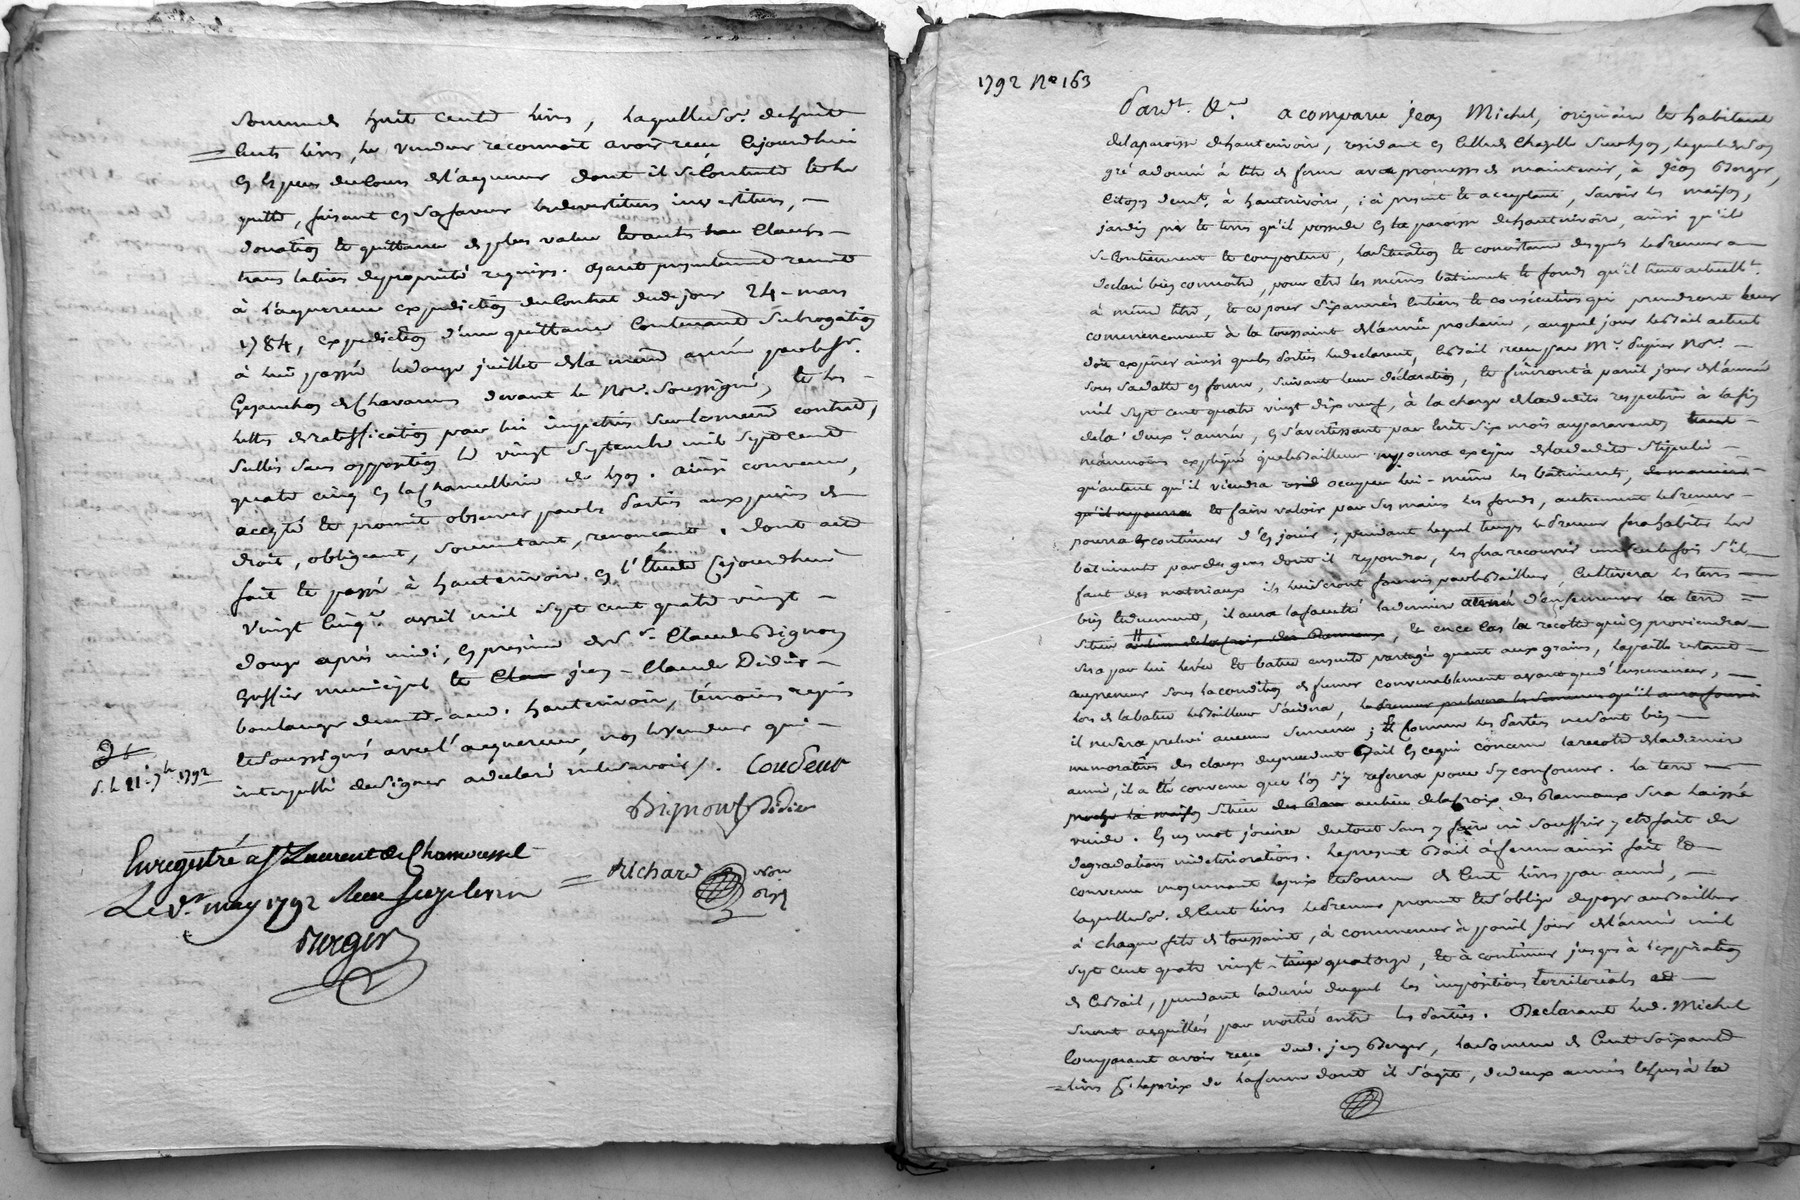 somme de huit cents livres, laquelle so.e de huit
cents livres, le vendeur reconnoit avoir reçu cejourdhui
en espèces du cours de l'acquereur dont il se contente et le
quitte, faisant en sa faveur les devestitures investitures,
donation et quittance de plus value et autres clauses
translatives de propriété requises. Ayant presentement remis
à l'acquereur expedition du contrat dudit jour 24 mars
1784, expedition d'une quittance contenant subrogation
à lui passée le douze juillet de la meme année par le sr.
de Chavannes devant le Nore. soussigné, et les
lettres de ratiffication par lui impetrées sur le meme contrat,
scellées sans opposition le vingt septembre mil sept cent
quatre cinq en la chancellerie de Lyon. ainsi convenu,
accepté et promis observer par les parties aux peines de
droit, obligeant, soumettant, renonçant. dont acte
fait et passé à hauterivoire en l'étude cejourdhui
vingt cinq avril mil sept cent quatre vingt
douze après midi, en présence de sr. Claude Bignon
officier municipal et jean-Claude Didier
boulanger demt. aud. hauterivoire, témoins requis
et soussignés avec l'acquereur, non le vendeur qui
interpellé de signer a declaré ne le savoir /. Coudeur
Bignon Didier
s. le 21 7bre 1792
Enregistré a St Laurent de Chamousset
Le may 1792 Reçu
Richard Nore
Berger
1792 No 163
Pardt. &a. a comparu jean Michel, originaire et habitant
de la paroisse de hauterivoire, residant en celle de Chazelle sur Lyon, lequel de son
gré a donné à titre de ferme avec promesse de maintenir, à jean Berger,
citoyen demt. à hauterivoire, ici présent et acceptant, savoir les maison,
jardin pré et terres qu'il possede en la paroisse de hauterivoire, ainsi qu'il
se contiennent et comportent, la situation et consistance desquels le preneur a
declaré bien connoitre, pour etre les memes bâtiments et fonds qu'il tient actuellt.
à même titre, et ce pour six années entieres et consécutives qui prendront leur
commencement à la toussaint de l'année prochaine, auquel jour le bail actuel
doit expirer ainsi que les parties le declarent, le bail reçu par Me. Nore.
sous sa datte en forme, suivant leur déclaration, et finiront à pareil jour de l'année
mil sept cent quatre vingt dix neuf, à la charge de la dedite respective à la fin
de la deuxe. année, en s'avertissant par écrit six mois auparavant,
néanmoins expliqué que le bailleur ne pourra exiger de la dedite stipulée
qu'autant qu'il viendra occuper lui-même les bâtiments, de maniere
qu'il ne pourra et faire valoir par ses mains les fonds, autrement le preneur
pourra continuer d'en jouir; pendant lequel temps le preneur fera habiter les
bâtiments par des gens dont il repondra, les fera recouvrir une seule fois s'il
faut des materiaux ils lui seront fournis par le bailleur, cultivera les terres
bien et duement, il aura la faculté la derniere année d'ensemencer la terre
située au lieu de la croix des Rameaux, et en ce cas la recolte qui en proviendra
sera par lui levée et battue ensuite partagée quant aux grains, la paille restant
au preneur sous la condition de fumer convenablement avant que d'ensemencer,
lors de la battue le bailleur s'aidera, le preneur prelevera les semences qu'il aura fourni
il ne sera prelevé aucune semence; et comme les parties ne sont bien
memoratives des clauses du precedent bail en ce qui concerne la recolte de la derniere
année, il a été convenu que l'on s'y referera pour s'y conformer. la terre
proche la maison située au lieu de la croix des Rameaux sera laissée
vuide. En un mot jouira du tout sans y faire ni souffrir y etre fait de
degradations ni deteriorations. Le present bail à ferme ainsi fait et
convenu moyennant le prix et somme de cent livres par année,
laquelle so.e de cent livres le preneur promet et s'oblige de payer au bailleur
à chaque fête de toussaint, à commencer à pareil jour de l'année mil
sept cent quatre vingt-quatorze, et à continuer jusques à l'expiration
de ce bail, pendant la durée duquel les impositions territoriales
seront acquittées par moitié entre les parties. Declarant led. Michel
comparant avoir reçu dud. jean Berger, la somme de cent soixante
livres pr. le prix de la ferme dont il s'agit, de deux années echues à la